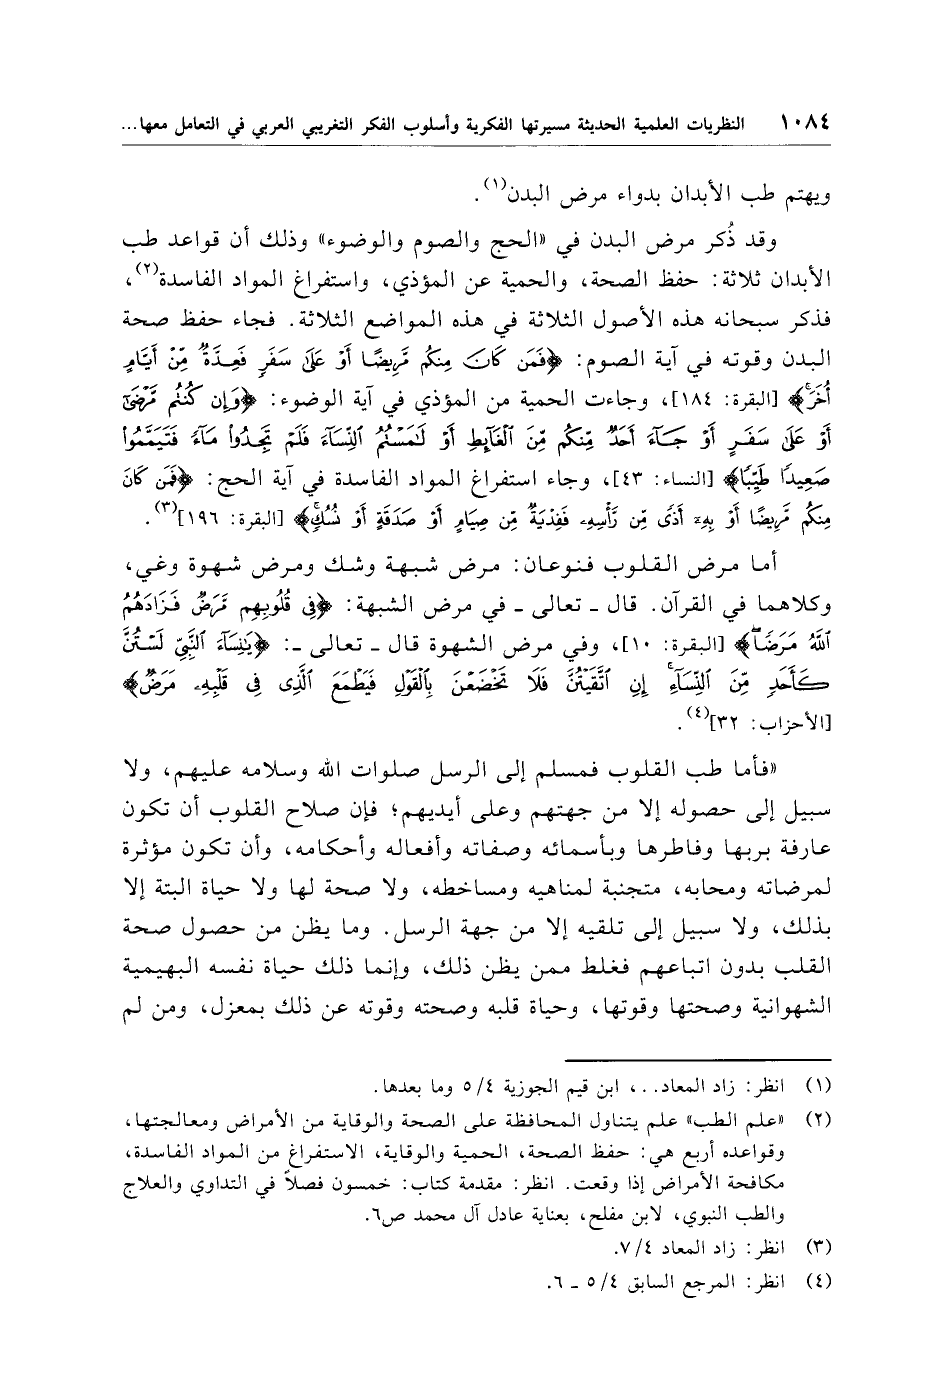 ١٠٨٤ النظريات العلمية الحديثة مسيرتها الفكرية وأسلوب الفكر التغريبي العربي في التعامل معها...
ويهتم طب الأبدان بدواء مرض البدن(١).
وقد ذُكر مرض البدن في «الحج والصوم والوضوء» وذلك أن قواعد طب
الأبدان ثلاثة: حفظ الصحة، والحمية عن المؤذي، واستفراغ المواد الفاسدة(٢)،
فذكر سبحانه هذه الأصول الثلاثة في هذه المواضع الثلاثة. فجاء حفظ صحة
البدن وقوته في آية الصوم: ﴿فَمَن كَانَ مِنكُم مَّرِيضًا أَوْ عَلَىٰ سَفَرٍ فَعِدَّةٌ مِّنْ أَيَّامٍ
أُخَرَ﴾ [البقرة: ١٨٤]، وجاءت الحمية من المؤذي في آية الوضوء: ﴿وَإِن كُنتُم مَّرْضَىٰٓ
أَوْ عَلَىٰ سَفَرٍ أَوْ جَآءَ أَحَدٌ مِّنكُم مِّنَ ٱلْغَآئِطِ أَوْ لَٰمَسْتُمُ ٱلنِّسَآءَ فَلَمْ تَجِدُوا۟ مَآءً فَتَيَمَّمُوا۟
صَعِيدًا طَيِّبًا﴾ [النساء: ٤٣]، وجاء استفراغ المواد الفاسدة في آية الحج: ﴿فَمَن كَانَ
مِنكُم مَّرِيضًا أَوْ بِهِۦٓ أَذًى مِّن رَّأْسِهِۦ فَفِدْيَةٌ مِّن صِيَامٍ أَوْ صَدَقَةٍ أَوْ نُسُكٍ﴾ [البقرة: ١٩٦](٣).
أما مرض القلوب فنوعان: مرض شبهة وشك ومرض شهوة وغي،
وكلاهما في القرآن. قال ـ تعالى ـ في مرض الشبهة: ﴿فِى قُلُوبِهِم مَّرَضٌ فَزَادَهُمُ
ٱللَّهُ مَرَضًا﴾ [البقرة: ١٠]، وفي مرض الشهوة قال ـ تعالى ـ: ﴿يَٰنِسَآءَ ٱلنَّبِىِّ لَسْتُنَّ
كَأَحَدٍ مِّنَ ٱلنِّسَآءِ إِنِ ٱتَّقَيْتُنَّ فَلَا تَخْضَعْنَ بِٱلْقَوْلِ فَيَطْمَعَ ٱلَّذِى فِى قَلْبِهِۦ مَرَضٌ﴾
[الأحزاب: ٣٢](٤).
«فأما طب القلوب فمسلم إلى الرسل صلوات الله وسلامه عليهم، ولا
سبيل إلى حصوله إلا من جهتهم وعلى أيديهم؛ فإن صلاح القلوب أن تكون
عارفة بربها وفاطرها وبأسمائه وصفاته وأفعاله وأحكامه، وأن تكون مؤثرة
لمرضاته ومحابه، متجنبة لمناهيه ومساخطه، ولا صحة لها ولا حياة البتة إلا
بذلك، ولا سبيل إلى تلقيه إلا من جهة الرسل. وما يظن من حصول صحة
القلب بدون اتباعهم فغلط ممن يظن ذلك، وإنما ذلك حياة نفسه البهيمية
الشهوانية وصحتها وقوتها، وحياة قلبه وصحته وقوته عن ذلك بمعزل، ومن لم
(١) انظر: زاد المعاد..، ابن قيم الجوزية ٥/٤ وما بعدها.
(٢) «علم الطب» علم يتناول المحافظة على الصحة والوقاية من الأمراض ومعالجتها،
وقواعده أربع هي: حفظ الصحة، الحمية والوقاية، الاستفراغ من المواد الفاسدة،
مكافحة الأمراض إذا وقعت. انظر: مقدمة كتاب: خمسون فصلاً في التداوي والعلاج
والطب النبوي، لابن مفلح، بعناية عادل آل محمد ص٦.
(٣) انظر: زاد المعاد ٧/٤.
(٤) انظر: المرجع السابق ٥/٤ ـ ٦.